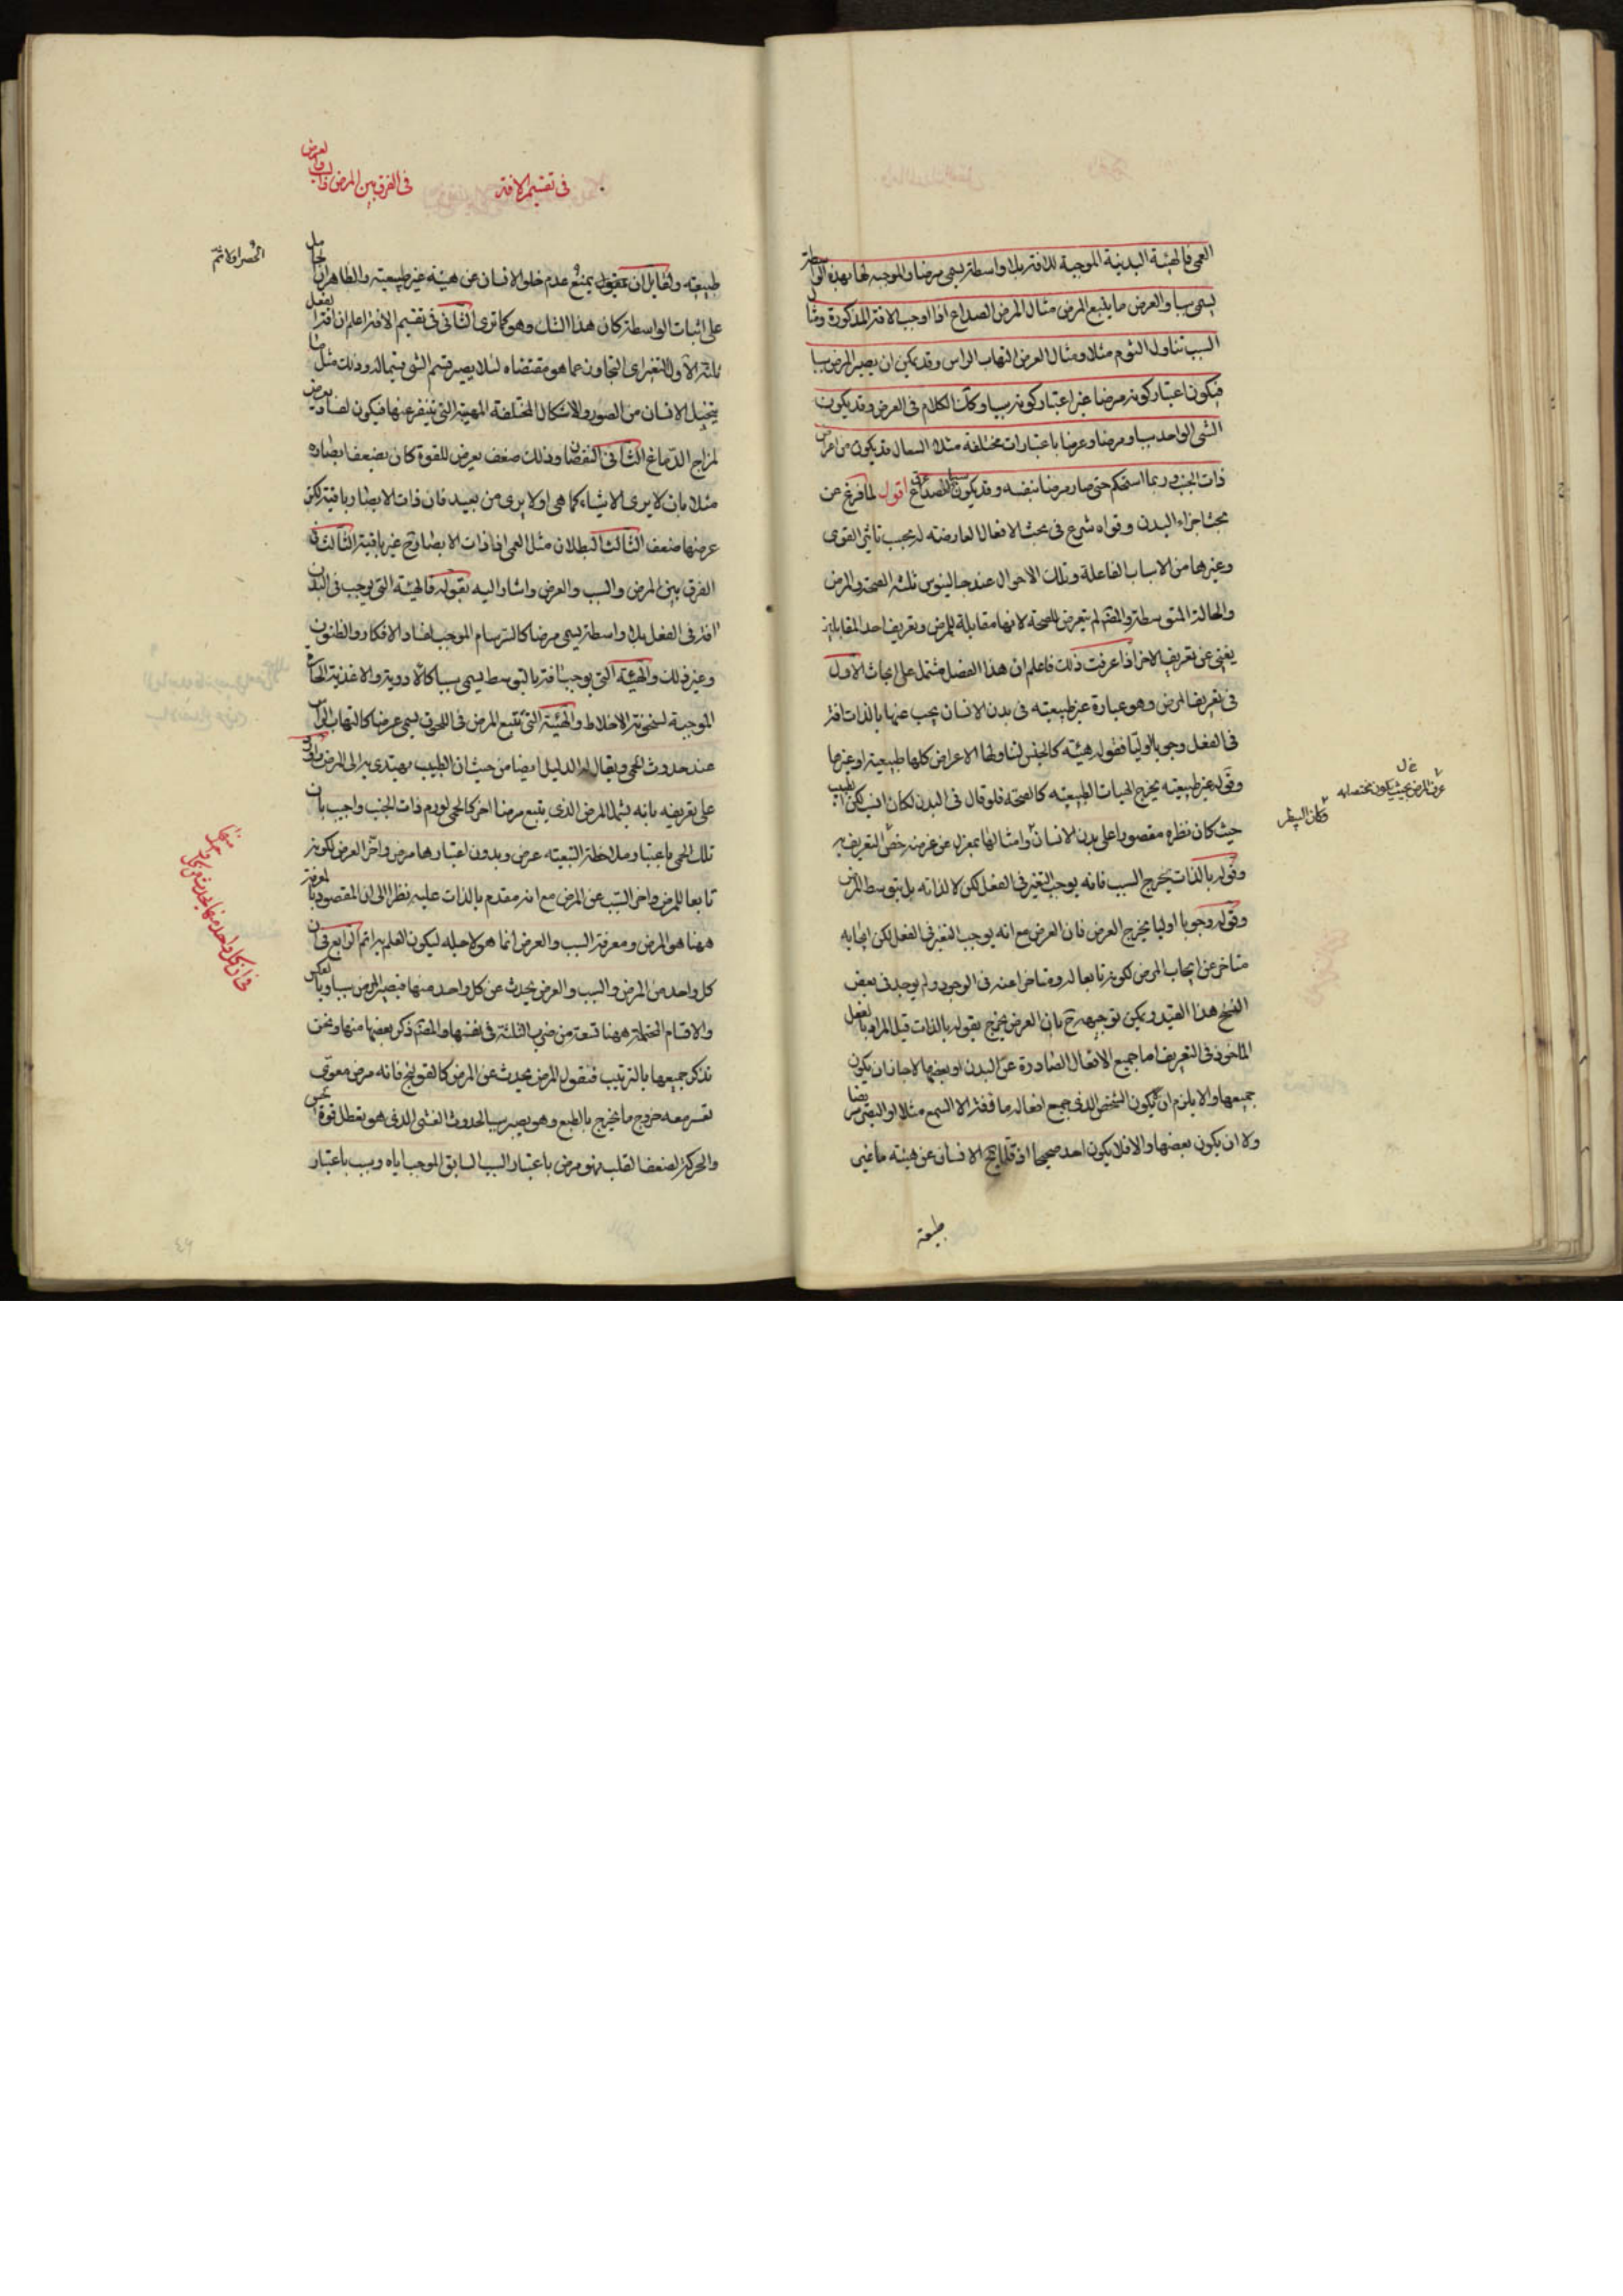 العمى فالهيئة البدنية الموجبة للافة بلا واسطة يسمى مرضا والموجبة لها بهذه الواسطة
يسمى سببا والعرض ما يتبع المرض مثال المرض الصداع اذا اوجب الافة المذكورة ومثال
السبب تناول الثوم مثلا ومثال العرض التهاب الراس وقد يمكن ان يصير المرض سببا
فيكون اعتبار كونه مرضا غير اعتبار كونه سببا وكذا الكلام فى العرض وقد يكون
الشى الواحد سببا ومرضا وعرضا باعتبارات مختلفة مثلا السعال قد يكون من اعراض
ذات الجنب وربما استحكم حتى صار مرضا بنفسه وقد يكون سببا اقول لما فرغ عن
بحث اجزاء البدن وقواه شرع فى بحث الافعال العارضة له بحب تاثير القوى
وغيرها من الاسباب الفاعلة وتلك الاحوال عند جالينوس ثلثة الصحة والمرض
والحالة المتوسطة والمصنف لم يتعرض للصحة لانها مقابلة للمرض وتعريف احد المقابلين
يغنى عن تعريف الاخر اذا عرفت ذلك فاعلم ان هذا الفصل مشتمل على ابحاث الاول
فى تعريف المرض وهو عبارة عن غير طبيعية فى بدن الانسان يجب عنها بالذات افة
فى الفعل وجوبا اوليا فقوله هيئة كالجنس لتناولها الاعراض كلها طبيعية او غيرها
وقوله غير طبيعية يخرج الهيات الطبيعية كالصحة فلو قال فى البدن لكان انسب لكن الطبيب
حيث كان نظره مقصورا على بدن الانسان وامثالها بمعزل عن غرضه خص التعريف به
وقوله بالذات يخرج السبب فانه يوجب التغير فى الفعل لكن لا لذاته بل بتوسط المرض
وقوله وجوبا اوليا يخرج العرض فان العرض مع انه يوجب التغير فى الفعل لكن ايجابه
متاخر عن ايجاب المرض لكونه تابعا له ومتاخرا عنه فى الوجود ولم يوجد فى بعض
النسخ هذا القيد ويمكن توجيهه ح بان العرض يخرج بقوله بالذات قيل المراد بالفعل
الماخوذ فى التعريف اما جميع الافعال الصادرة عن البدن او بعضها لا جائز ان يكون
جميعها والا يلزم ان يكون الشخص الذى جميع افعاله ما وفة الا السمع مثلا او البصر مريضا
ولا ان يكون بعضها والا فلا يكون احد صحيحا اذ قلما يخ الانسان عن هيئة ما غير
طبيعة
فى تقسيم الافة
فى الفرق بين المرض والسبب والعرض
طبيعية ولقايل ان يقول يمنع عدم خلو الانسان عن هيئة غير طبيعية والظاهر ان الحامل
على اثبات الواسطة كان هذا الشك وهو كما ترى الثانى فى تقسيم الافة اعلم ان افة الفعل
ثلثة الاول التغير اى التجاوز عما هو مقتضاه لئلا يصير قسم الشى قسيما له وذلك مثل ما
يتخيل الانسان من الصور والاشكال المختلفة المهيبة التى يتنفر عنها فيكون لفساد يعرض
لمزاج الدماغ الثانى النقصان وذلك ضعف يعرض للقوة كان يضعف ابصاره
مثلا بان لا يرى الاشياء كما هى او لا يرى من بعيد فان ذات الابصار باقية لكن
عرضها ضعف الثالث البطلان مثل العمى اذا ذات الابصار ح غير باقية الثالث فى
الفرق بين المرض والسبب والعرض واشار اليه بقوله فالهيئة التى يوجب فى البدن
افة فى الفعل بلا واسطة يسمى مرضا كالسرسام الموجب لفساد الافكار والظنون
وغير ذلك والهيئة التى يوجب افة بالتوسط يسمى سببا كالادوية والاغذية الحارة
الموجبة لسخونة الاخلاط والهيئة التى تتبع المرض فى اللحوق يسمى عرضا كالتهاب الراس
عند حدوث الحمى ويقال له الدليل ايضا من حيث ان الطبيب يهتدى به الى المرض واورد
على تعريفه بانه يشمل المرض الذى يتبع مرضا اخر كالحمى لورم ذات الجنب واجيب بان
تلك الحمى باعتبار ملاحظة التبعية عرض وبدون اعتبارها مرض واخر العرض لكونه
تابعا للمرض واخر السبب عن المرض مع انه مقدم بالذات عليه نظرا الى ان المقصود بالمعرفة
ههنا هو المرض ومعرفة السبب والعرض انما هو لاجله ليكون العلم به اتم الرابع فى ان
كل واحد من المرض والسبب والعرض يحدث عن كل واحد منها فيصير المرض سببا وبالعكس
والاقسام المحتملة ههنا تسعة من ضرب الثلثة فى نفسها والمصنف ذكر بعضها منها ونحن
نذكر جميعها بالترتيب فنقول المرض يحدث عن المرض كالقولنج فانه مرض معوى
تعسر معه خروج ما يخرج بالطبع وهو يصير سببا لحدوث الغشى الذى هو تعطل قوة الحس
والحركة لضعف القلب فهو مرض باعتبار السبب السابق الموجب اياه وسبب باعتبار